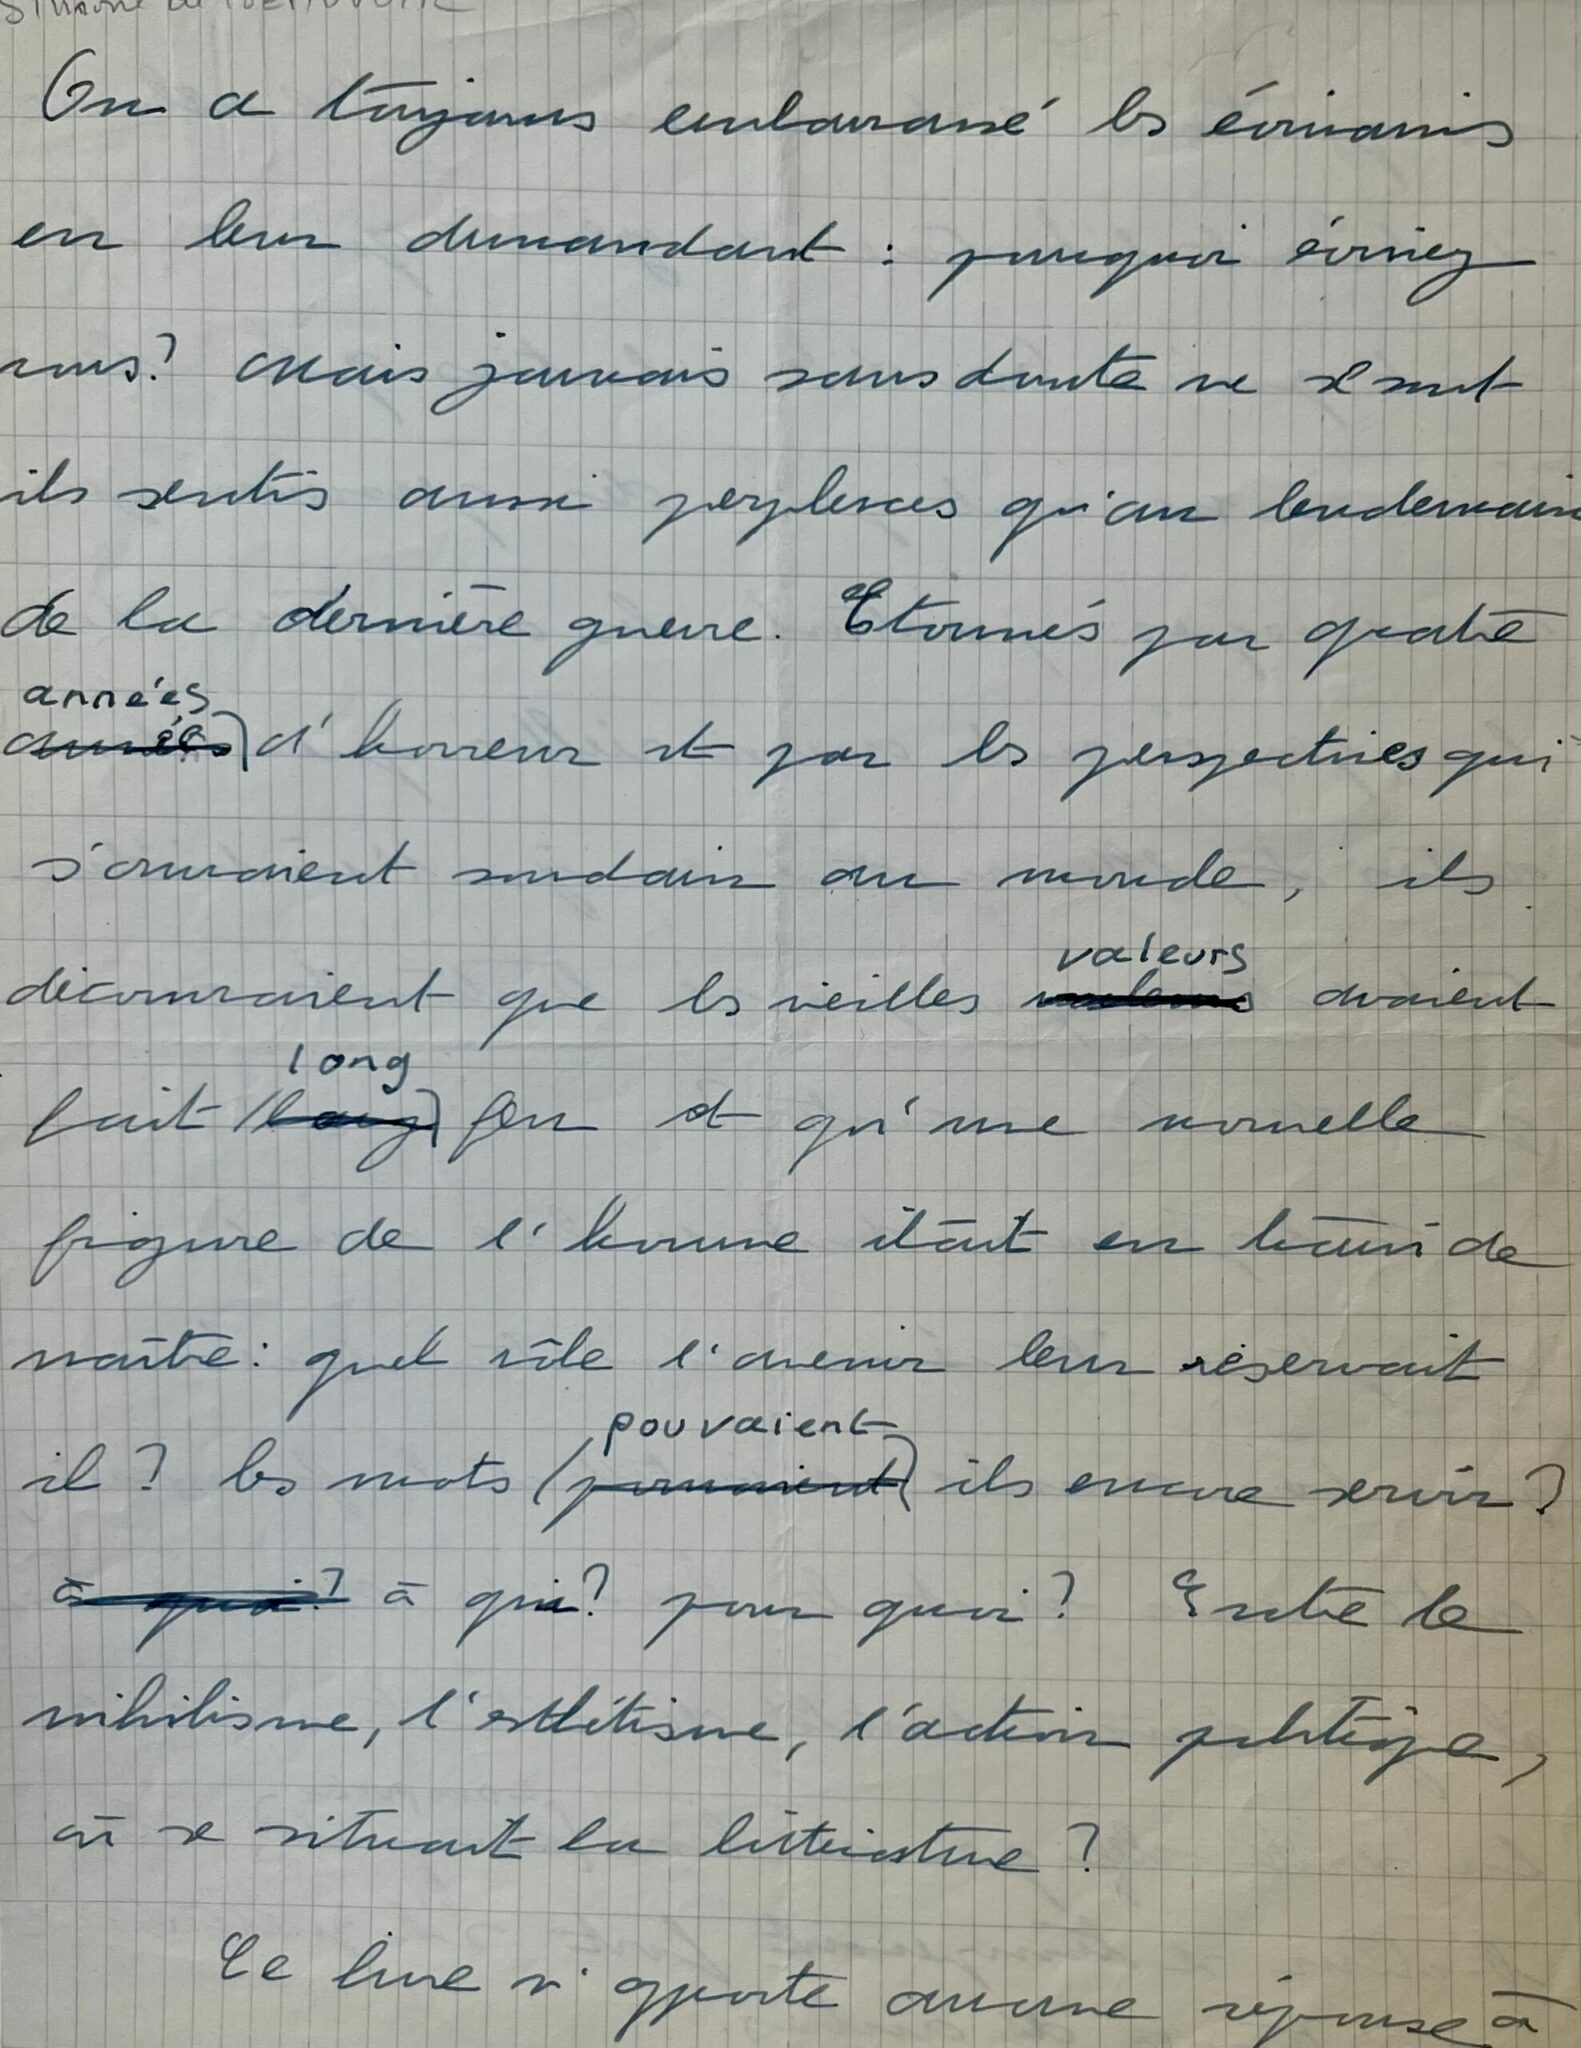 Simone de Beauvoir
On a toujours embarrassé les écrivains
en leur demandant : pourquoi écrivez
vous? Mais jamais sans doute ne se sont
ils sentis aussi perplexes qu'au lendemain
de la dernière guerre. Etonnés par quatre
années
années) d'horreur et par les perspectives qui
s'ouvraient soudain au monde, ils
découvraient que les vieilles valeurs avaient
valeurs
long
fait (long) feu et qu'une nouvelle
figure de l'homme était en train de
naître : quel rôle l'avenir leur réservait
pouvaient
il? les mots (pouvaient) ils encore servir?
à quoi? à qui? pour quoi? Entre le
nihilisme, l'esthétisme, l'action politique,
où se situait la littérature?
Ce livre n'apporte aucune réponse à